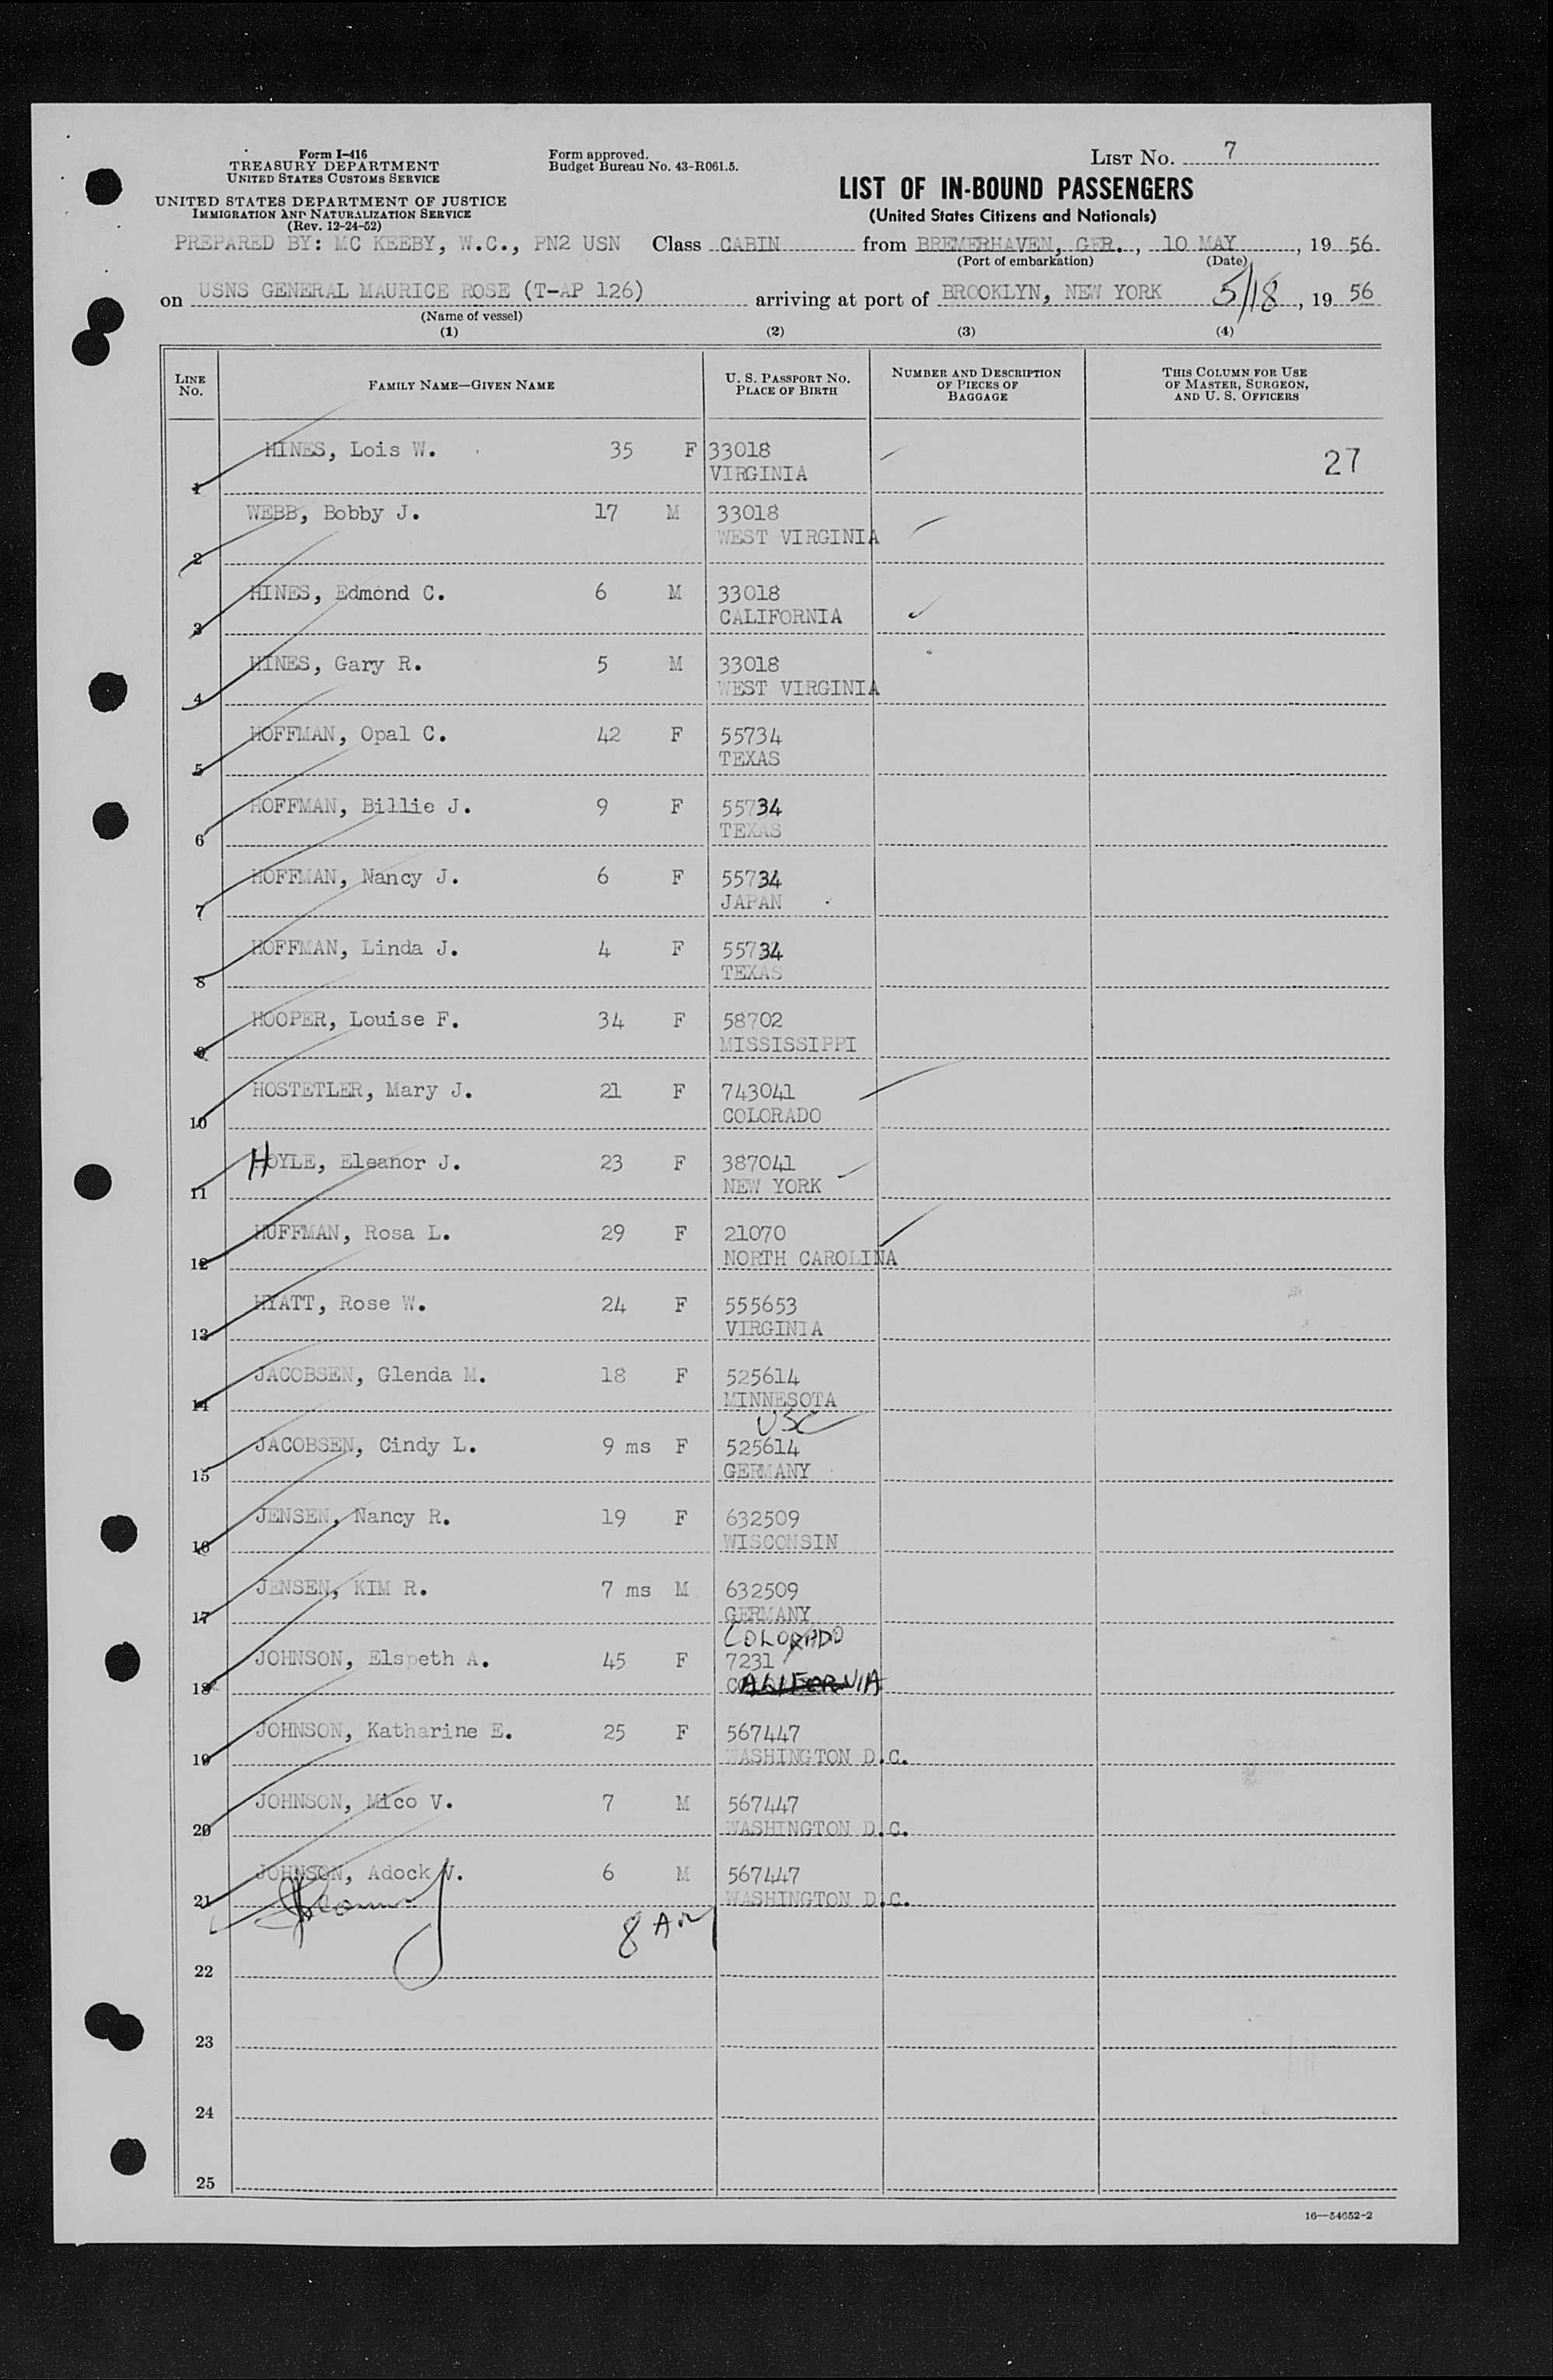 Form I-416
TREASURY DEPARTMENT
UNITED STATES CUSTOMS SERVICE
UNITED STATES DEPARTMENT OF JUSTICE
IMMIGRATION AND NATURALIZATION SERVICE
(Rev. 12-24-52)
Form approved.
Budget Bureau No. 43-R061.5.
LIST No. 7
LIST OF IN-BOUND PASSENGERS
(United States Citizens and Nationals)
PREPARED BY: MC KEEBY, W.C., PN2 USN Class CABIN from BREMERHAVEN, GER., 10 MAY, 19 56
(Port of embarkation) (Date)
on USNS GENERAL MAURICE ROSE (T-AP 126) arriving at port of BROOKLYN, NEW YORK 5/18, 19 56
(Name of vessel)
(1) (2) (3) (4)
LINE No. FAMILY NAME—GIVEN NAME U. S. PASSPORT NO. PLACE OF BIRTH NUMBER AND DESCRIPTION OF PIECES OF BAGGAGE THIS COLUMN FOR USE OF MASTER, SURGEON, AND U. S. OFFICERS
1 HINES, Lois W. 35 F 33018 27
VIRGINIA
2 WEBB, Bobby J. 17 M 33018
WEST VIRGINIA
3 HINES, Edmond C. 6 M 33018
CALIFORNIA
4 HINES, Gary R. 5 M 33018
WEST VIRGINIA
5 HOFFMAN, Opal C. 42 F 55734
TEXAS
6 HOFFMAN, Billie J. 9 F 55734
TEXAS
7 HOFFMAN, Nancy J. 6 F 55734
JAPAN
8 HOFFMAN, Linda J. 4 F 55734
TEXAS
9 HOOPER, Louise F. 34 F 58702
MISSISSIPPI
10 HOSTETLER, Mary J. 21 F 743041
COLORADO
11 HOYLE, Eleanor J. 23 F 387041
NEW YORK
12 HUFFMAN, Rosa L. 29 F 21070
NORTH CAROLINA
13 HYATT, Rose W. 24 F 555653
VIRGINIA
14 JACOBSEN, Glenda M. 18 F 525614
MINNESOTA
USC
15 JACOBSEN, Cindy L. 9 ms F 525614
GERMANY
16 JENSEN, Nancy R. 19 F 632509
WISCONSIN
17 JENSEN, KIM R. 7 ms M 632509
GERMANY
COLORADO
18 JOHNSON, Elspeth A. 45 F 7231
CALIFORNIA
19 JOHNSON, Katharine E. 25 F 567447
WASHINGTON D.C.
20 JOHNSON, Mico V. 7 M 567447
WASHINGTON D.C.
21 JOHNSON, Adock V. 6 M 567447
WASHINGTON D.C.
22
23
24
25
16—54652-2